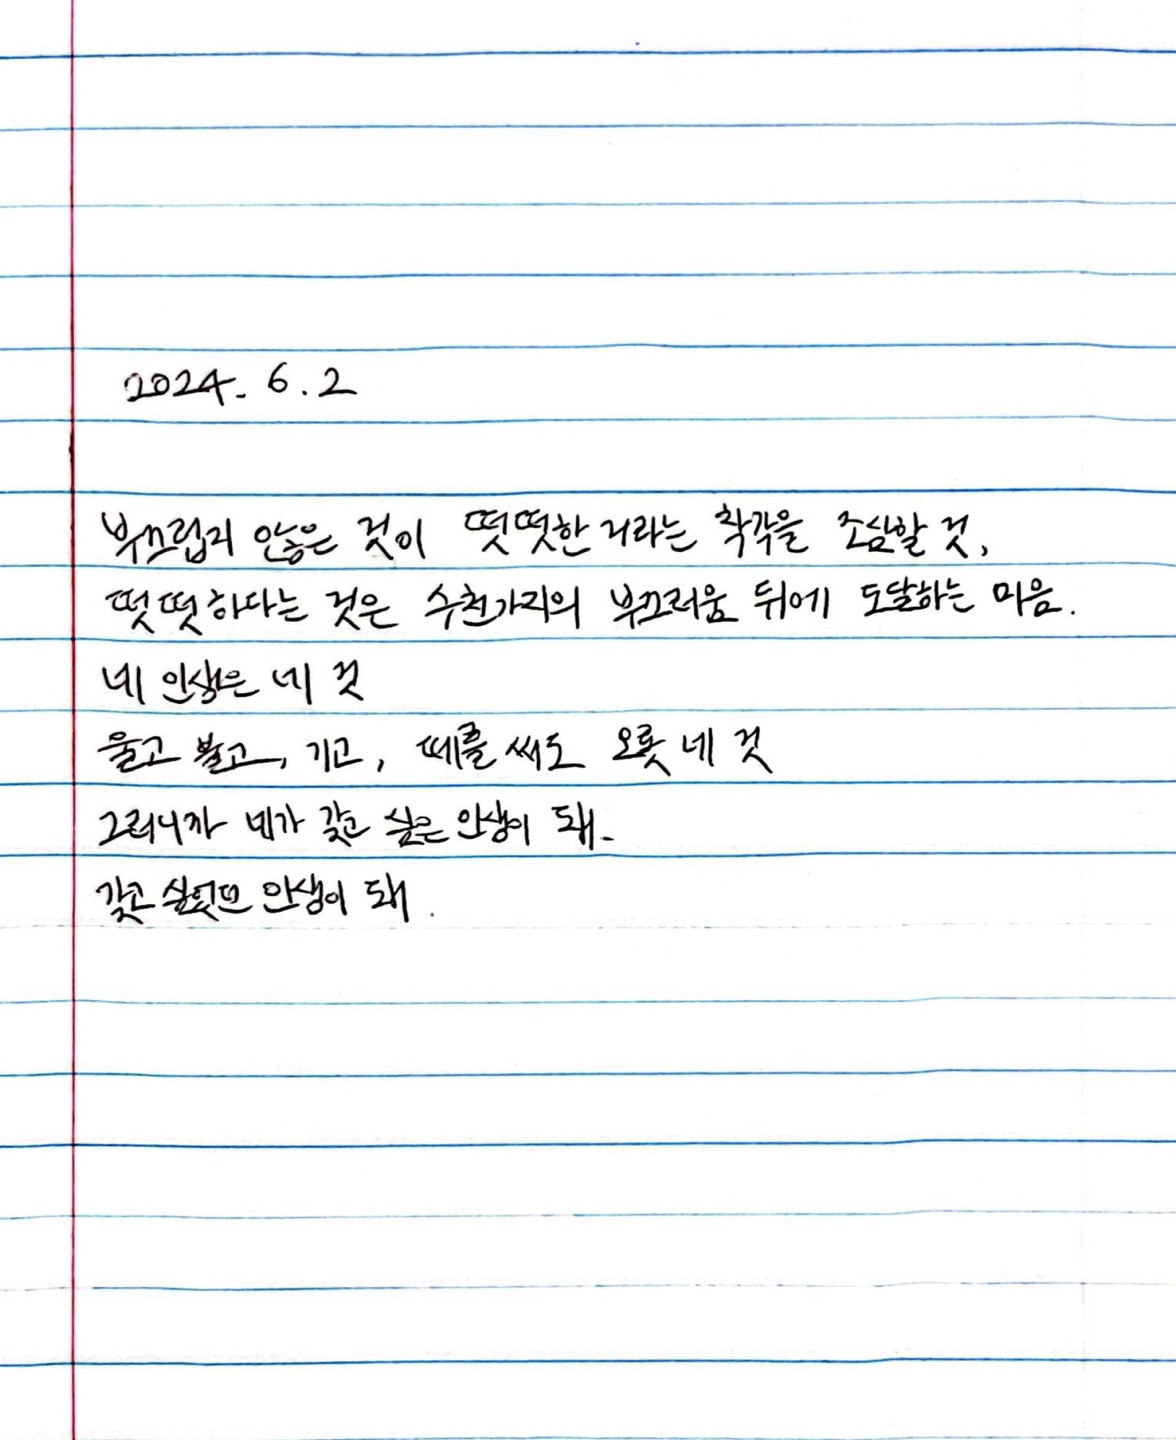 2024. 6. 2
부끄럽지 않은 것이 떳떳한 거라는 착각을 조심할 것,
떳떳하다는 것은 수천가지의 부끄러움 뒤에 도달하는 마음.
네 인생은 네 것
울고 불고, 기고, 떼를 써도 오롯 네 것
그러니까 네가 갖고 싶은 인생이 돼.
갖고 싶었던 인생이 돼.